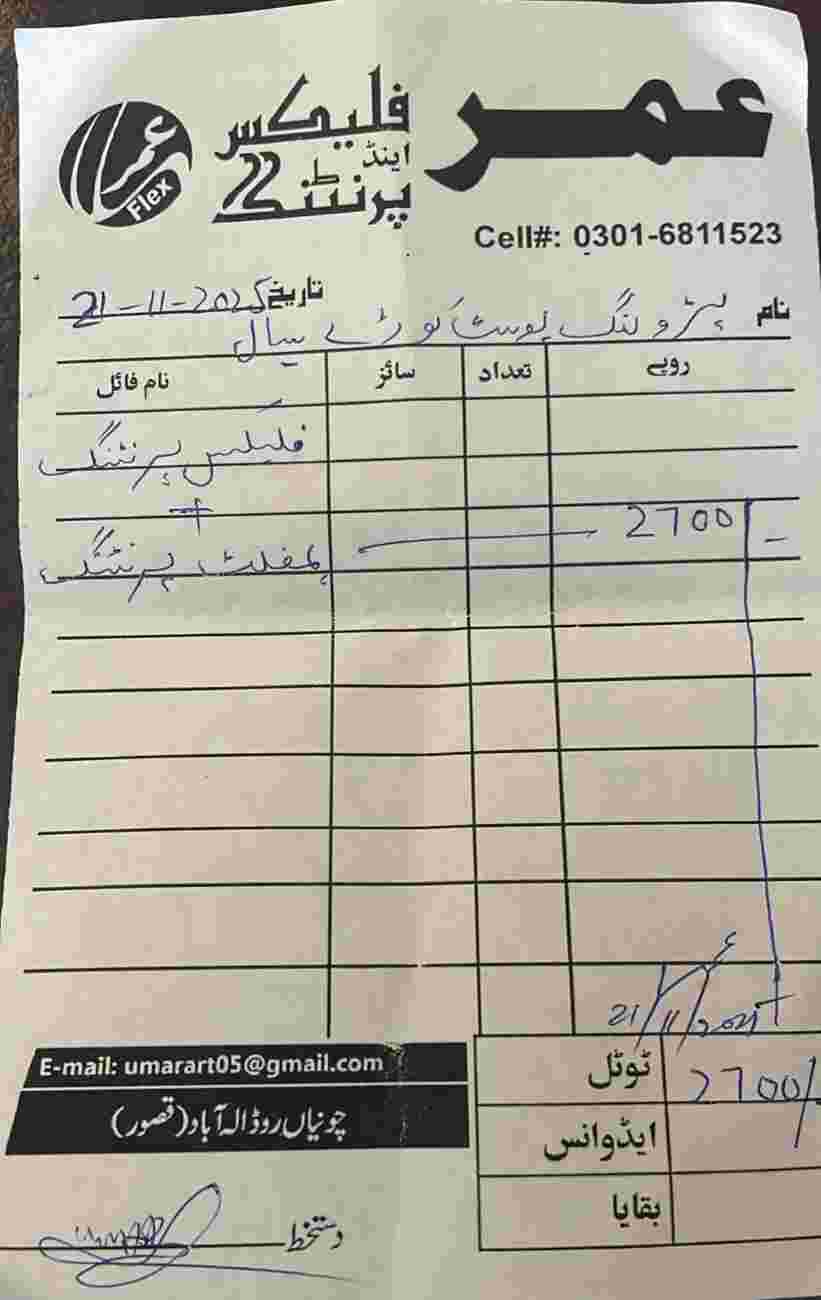 عمر
فلیکس
اینڈ
پرنٹنگ
عمر
Flex
Cell#: 0301-6811523
تاریخ 21-11-2025
نام پٹرولنگ پوسٹ کوڑے سیال
نام فائل سائز تعداد روپے
فلیکس پرنٹنگ
+
پمفلٹ پرنٹنگ 2700/-
عمر
21/11/2025
ٹوٹل 2700/-
ایڈوانس
بقایا
E-mail: umarart05@gmail.com
چونیاں روڈ الہ آباد (قصور)
دستخط